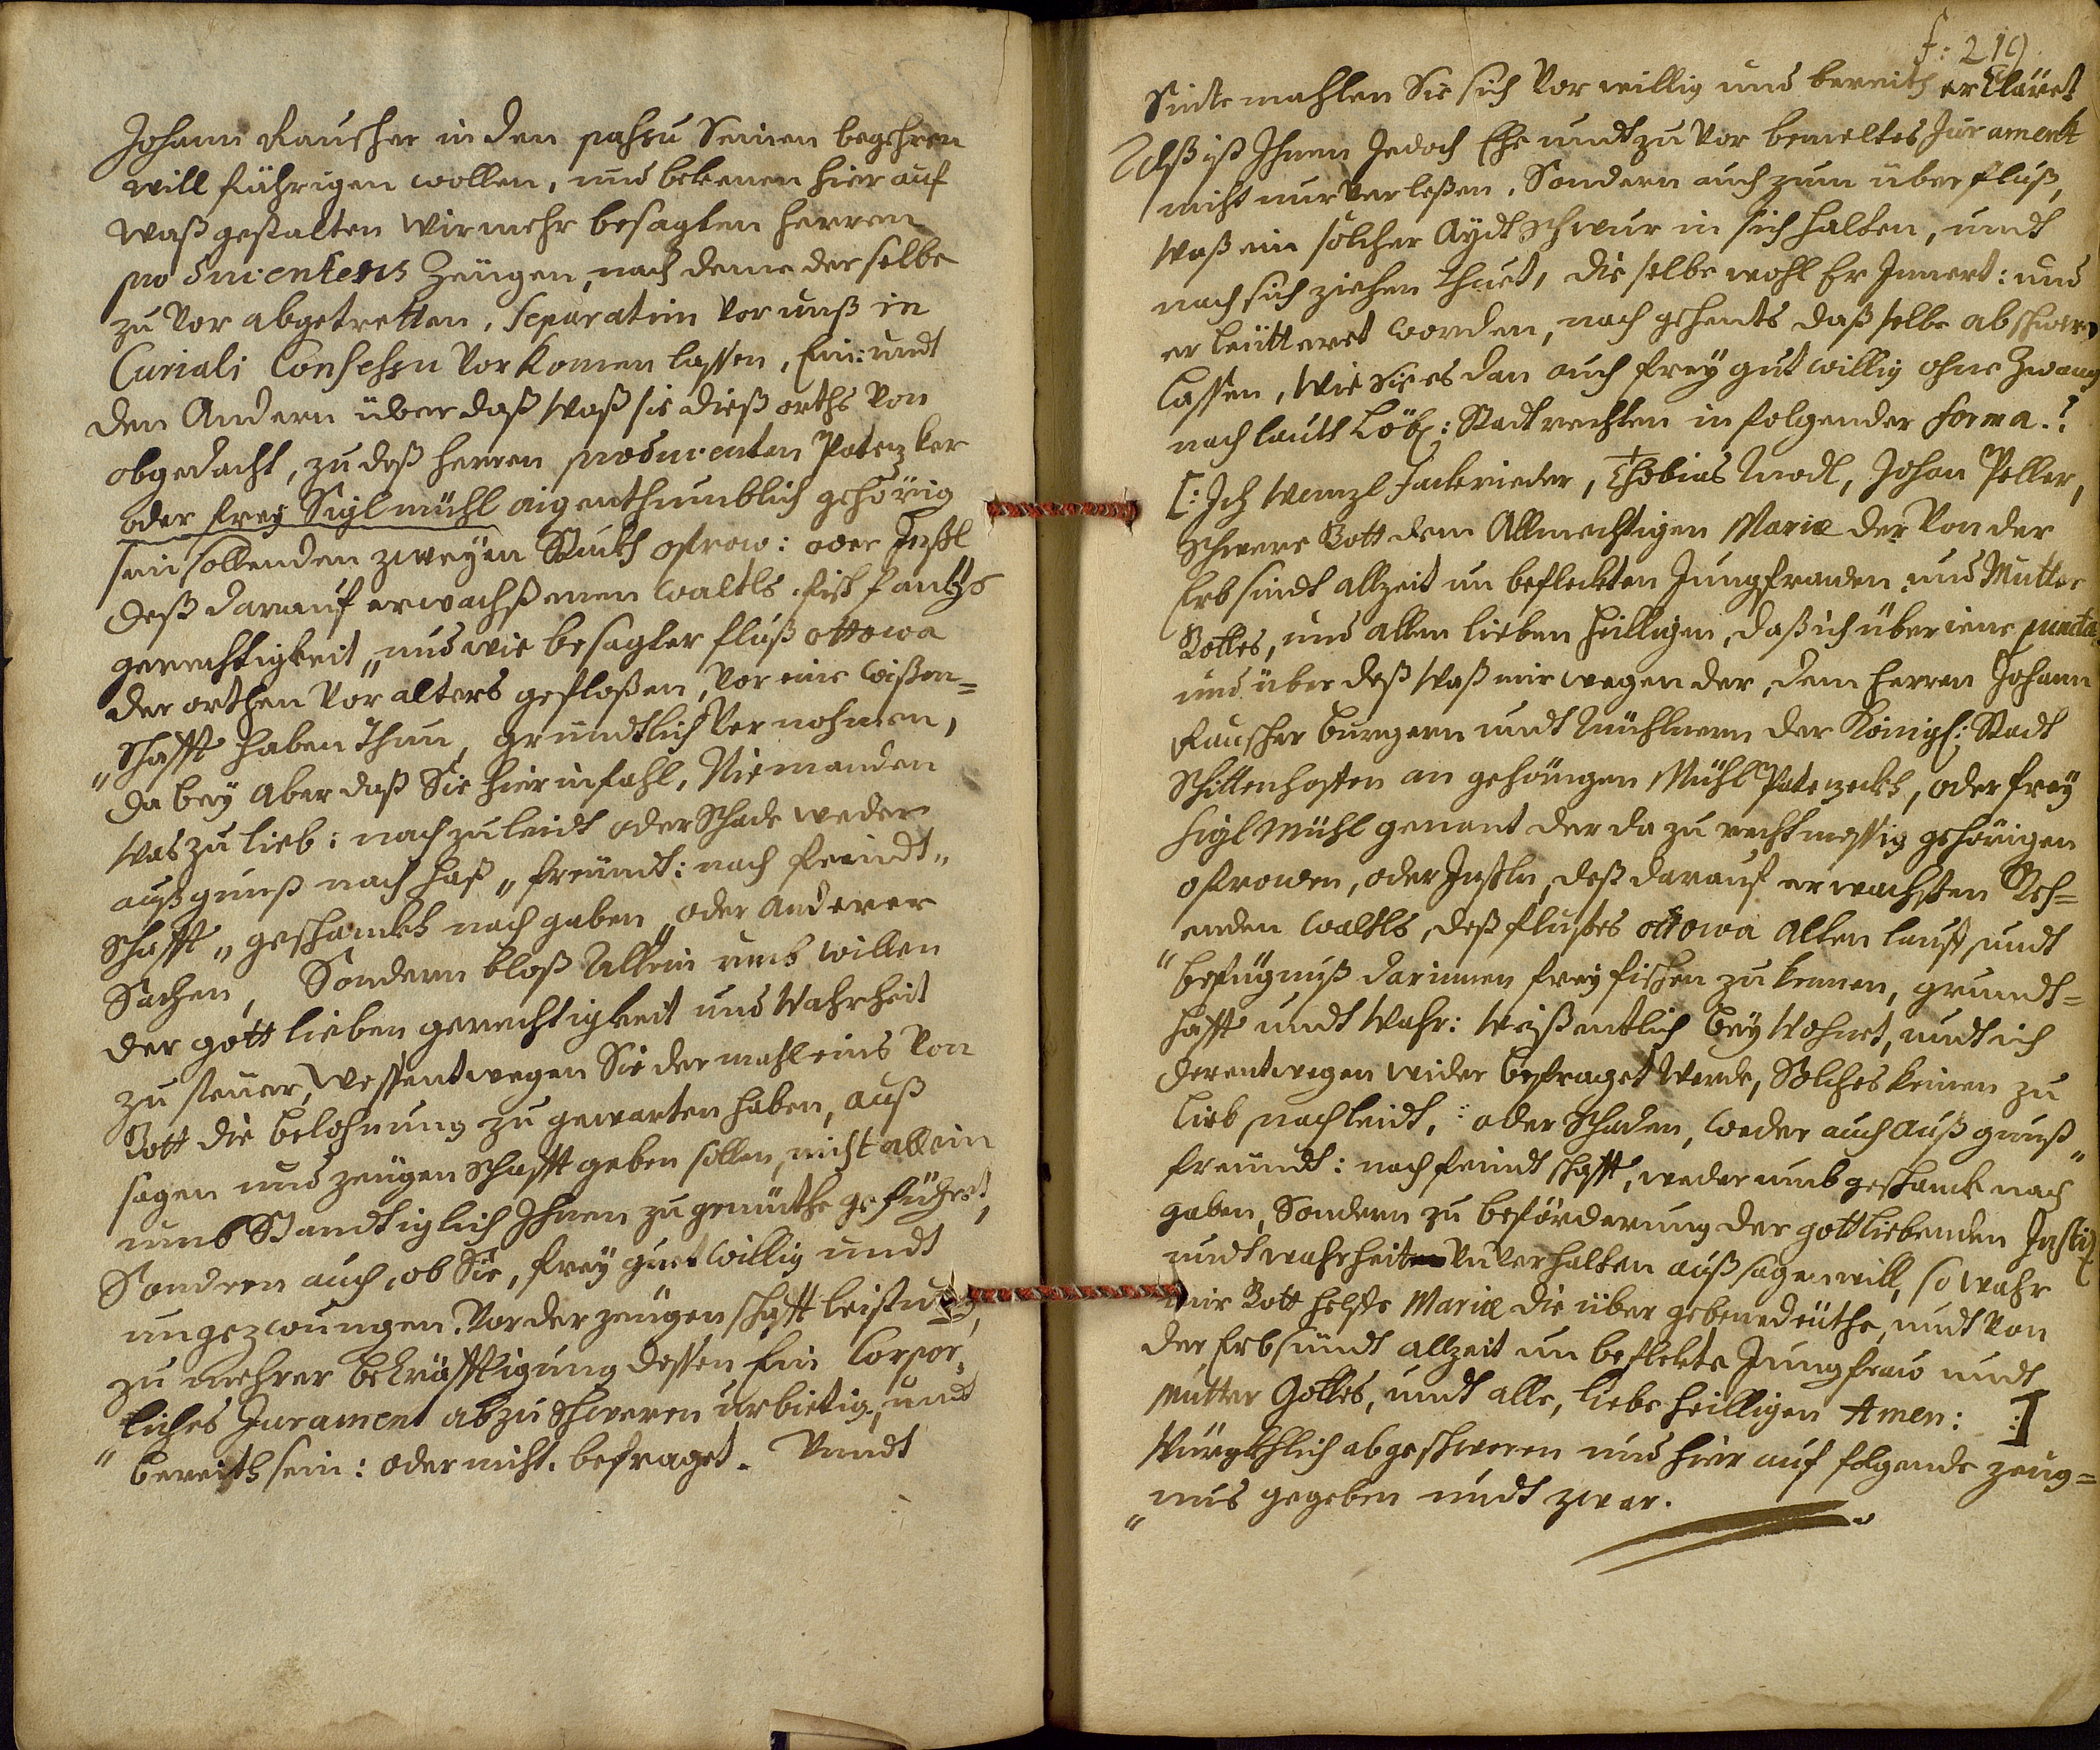 Johann Rauscher in den passu Seinen begehren
will führigen wollen, und bekenen hier auf
waß gestalten wir mehr besagten herren
producentens Zeügen, nach deme derselbe
zu vor abgetretten, separatim vor unß in
Curiali Consessu vorkomen lassen, Ein: undt
den Andern über daß waß sie dieß orths von
obgedacht, zu deß herren producenten Patenzker
oder frey Sigl mühl aigenthumblich gehörig
sein sollenden zweÿen Stuckh ostrow: oder Inßl
deß darauf erwachßenen waldts fisch fangs
gerechtigkeit, und wie besagter fluß ottowa
der orthen vor alters gefloßen, vor eine wißen=
"schafft haben thun, gründtlich vernohmen,
da beÿ aber daß Sie hierinfahl, Niemanden
was zu lieb: nach zu leidt oder schade weder
auß gunst nach haß, freündt: nach feindt"
schafft, geschänckh nach gaben, oder anderer
Sachen, Sondern bloß Allein umb willen
der gott lieben gerechtigkeit und Wahrheit
zu steüer, wessentwegen Sie dermahleins von
Gott die belohnung zu gewarten haben, auß
sagen und zeügenschafft geben sollen, nicht allein
umbstandtiglich Ihnen zu gemüthe geführet,
Sondern auch, ob Sie, freÿ guetwillig undt
ungezwoungen, vor der zeügenschafft leistung,
zu mehrer bekräfftigung dessen Ein Corpor,
"liches Jurament abzuschweren urbietig, undt
"bereith sein: oder nicht. befraget. Undt
f: 219
Sinte mahlen Sie sich vor willig und bereith erkläret
Alß ist Ihnen Jedoch Ehe undt zu vor bemeltes Jurament
nicht nur verleßen, Sondern auch zum überfluß,
waß ein solcher Aÿdtschwur in sich halten, undt
nach sich ziehen thuet, dieselbe wohl Er Innert: und
erleütteret worden, nachgehents daß selbe abschweren
lassen, wie sie es dan auch freÿ gutwillig ohne Zwang
nach lautt Löbl: Stadtrechten in folgender forma.:
[: Ich Wenzl Jackrieder, Thobias Modl, Johan Peller,
Schwere Gott dem Allmechtigen Mariæ der von der
Erbsindt allzeit unbefleckten Jungfrauen, und Mutter
Gottes, und allen lieben heilligen, daß ich über iene puncta
und über deß waß mir wegen der, dem herren Johann
Rauscher burgern undt Mühlnern der Königl: Stadt
Schittenhoffen angehörigen Mühl Patenzeckh, oder freÿ
sigl Mühl genant der da zu rechtmessig gehörigen
ostrowen, oder Inßln, deß darauf erwachßen Steh=
enden waldts, deß flußes ottowa alten lauff, undt
"befügnuß darinnen freÿ fischen zu kennen, grundt=
hafft undt wahr: wißentlich beÿwohnet, undt ich
derentwegen wider befraget werde, Solches keinen zu
lieb, nach leidt, oder schaden, weder auch auß gunst"
freundt: nach feindtschafft, weder umb geschanck nach
gaben, Sondern zu beförderung der gottliebenden Justiz
undt wahrheit unverhalten auß sagen will, so wahr
mir Gott helffe Mariæ die über gebenedeüthe, undt von
der Erbsündt allzeit unbeflekte Jungfrau undt
Mutter Gottes, undt alle, liebe heilligen Amen: :]
würgkhlich abgeschworen und hier auf folgende zeug=
"nus gegeben undt zwar.